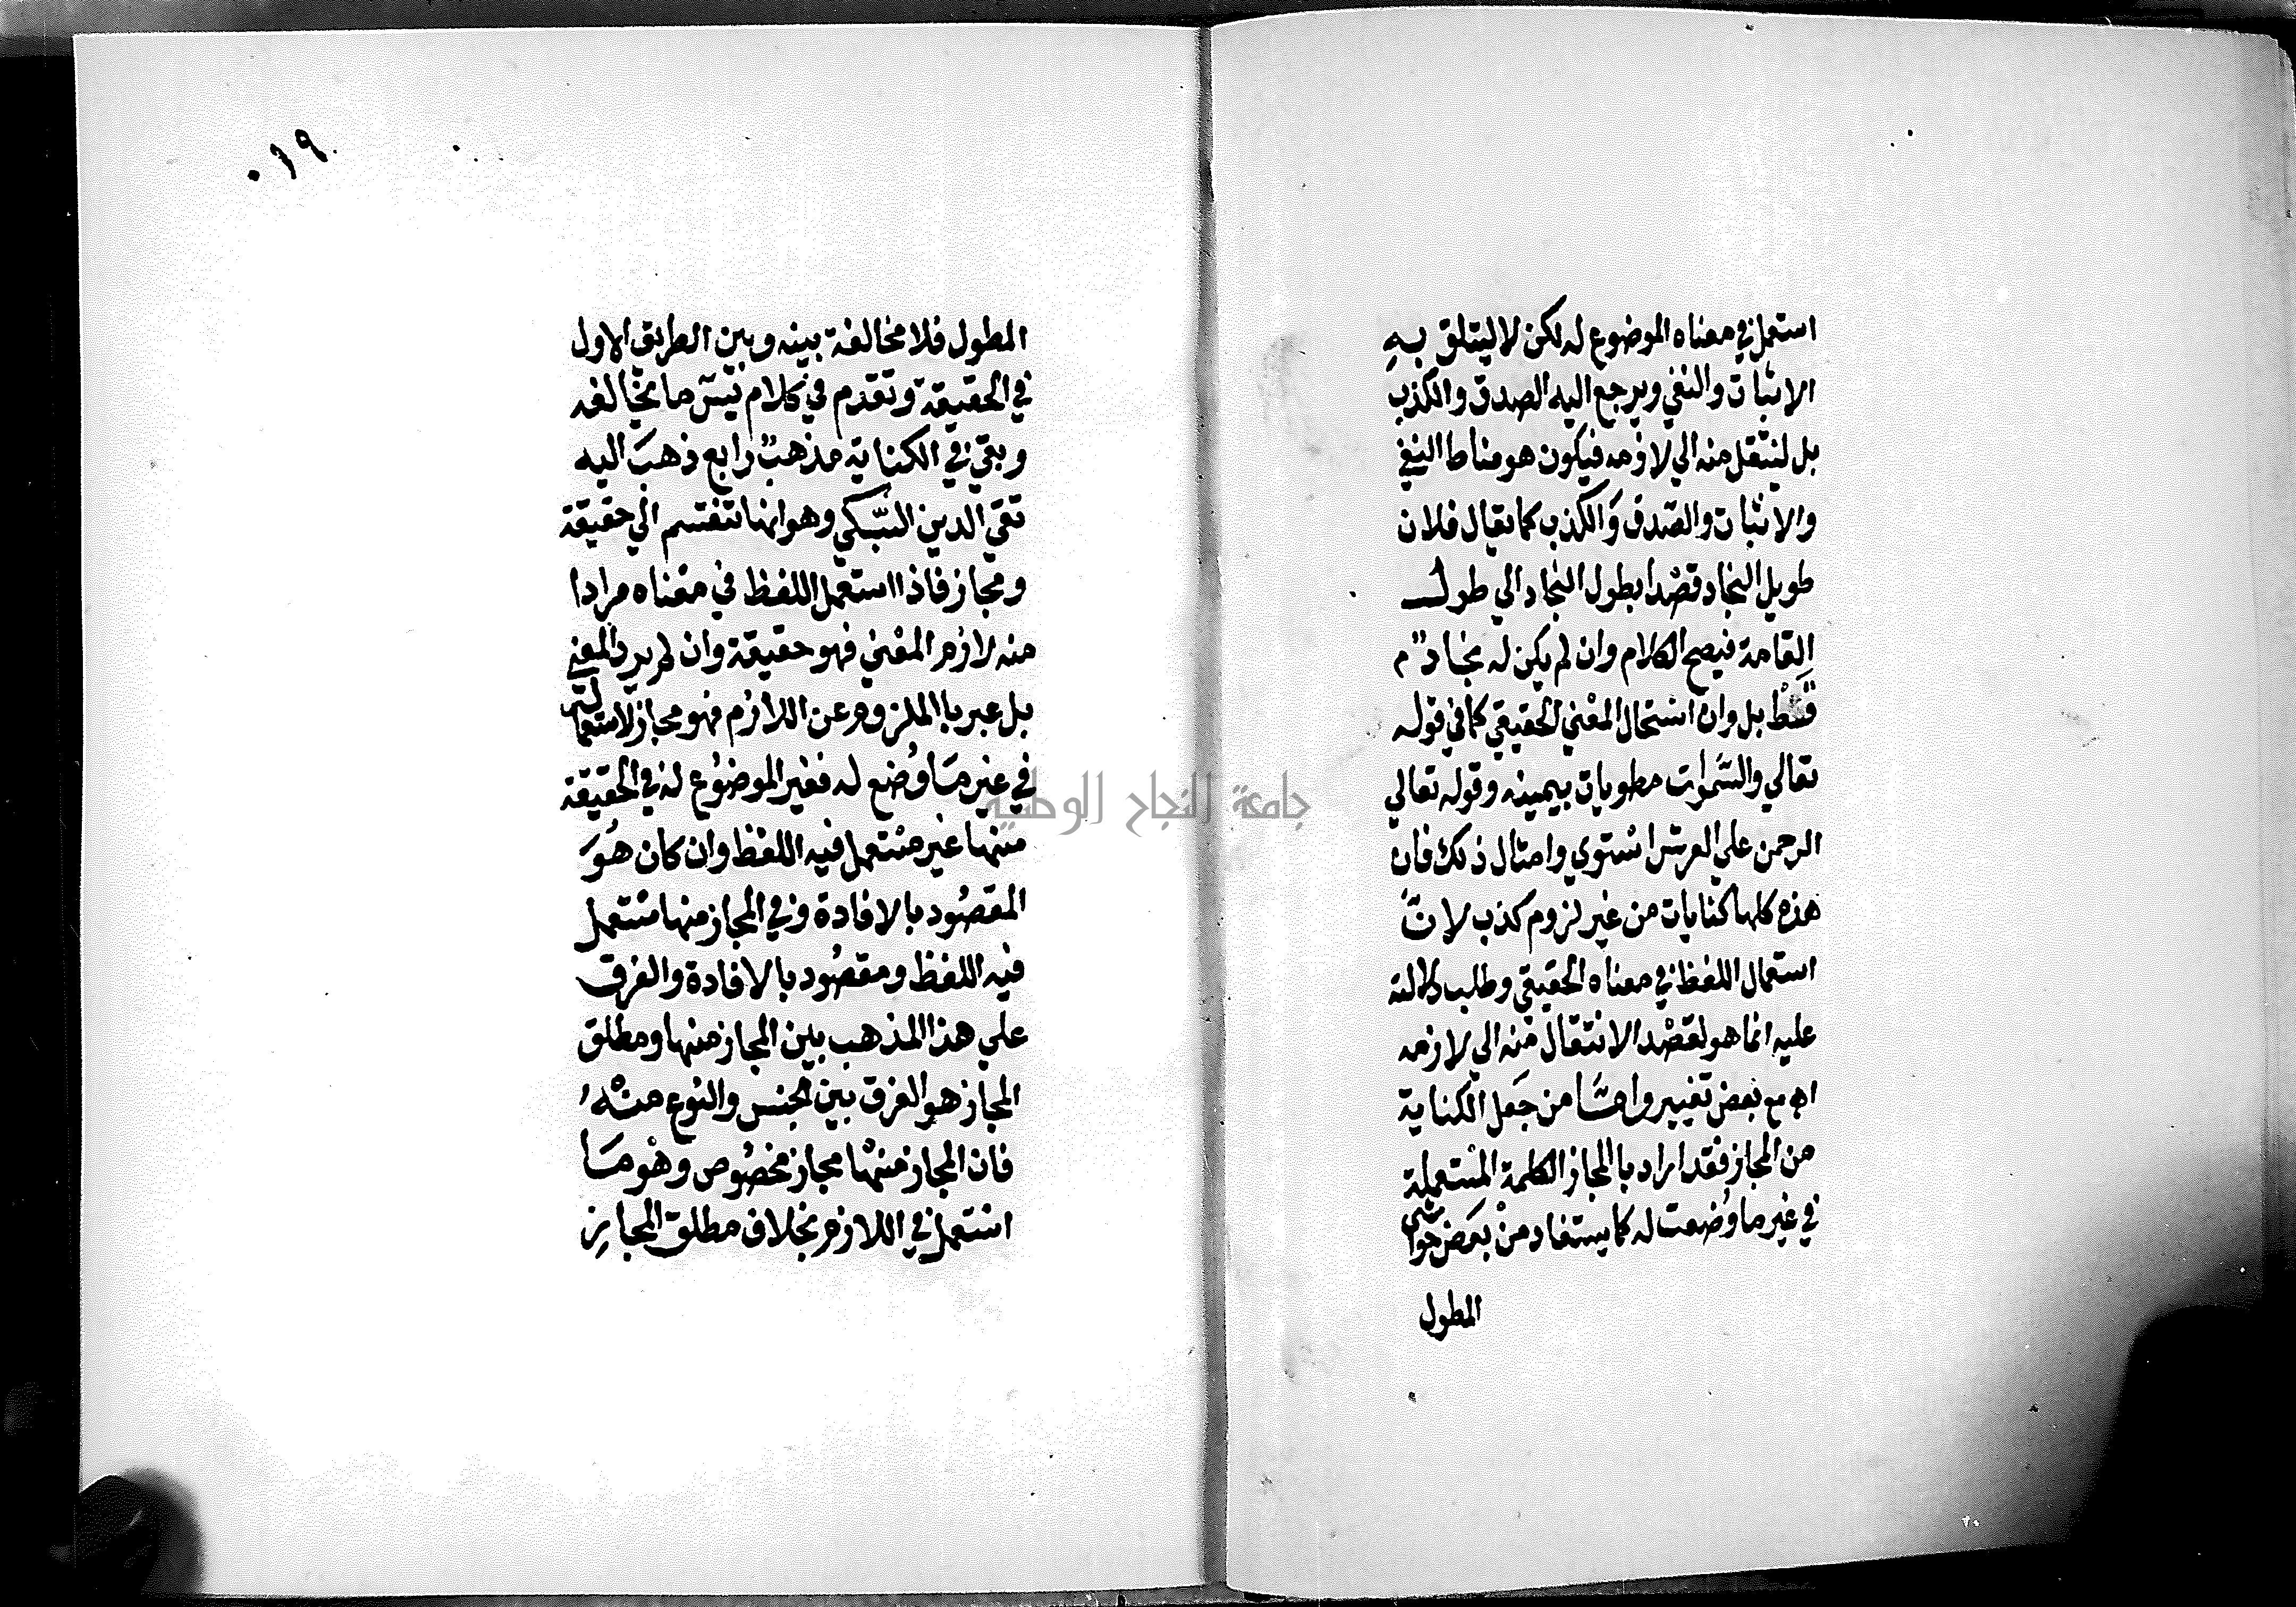 استعمل في معناه الموضوع له لكن لا ليتلق به
الاثبات والنفي ويرجع اليه الصدق والكذب
بل لينتقل منه الي لازمه فيكون هو مناط النفي
والاثبات والصدق والكذب كما يقال فلان
طويل النجاد قصدا بطول النجاد الي طول
القامة فيصح الكلام وان لم يكن له نجاد م
قط بل وان استحال المعني الحقيقي كما في قوله
تعالي والسموات مطويات بيمينه وقوله تعالي
الرحمن علي العرش استوي وامثال ذلك فان
هذه كلها كنايات من غير لزوم كذب لان
استعمال اللفظ في معناه الحقيقي وطلب دلالته
عليه انما هو لقصد الانتقال منه الي لازمه
اه مع بعض تغيير وامّا من جعل الكناية
من المجاز فقد اراد بالمجاز الكلمة المستعملة
في غير ما وضعت له كما يستفاد من بعض حواشي
المطول
٠١٩
المطول فلا مخالفة بينه وبين الطريق الاول
في الحقيقة وتقدم في كلام يسٓ ما يخالفه
وبقي في الكناية مذهب رابع ذهب اليه
تقي الدين السّبكي وهو انها تنقسم الي حقيقة
ومجاز فاذا استعمل اللفظ في معناه مرادا
منه لازم المعني فهو حقيقة وان لم يرد المعني
بل عبر بالملزوم عن اللازم فهو مجاز لاستعماله
في غير ما وضع له فغير الموضوع له في الحقيقة
منها غير مستعمل فيه اللفظ وان كان هو
المقصود بالافادة وفي المجاز منها مستعمل
فيه اللفظ ومقصود بالافادة والفرق
علي هذا المذهب بين المجاز منها ومطلق
المجاز هو الفرق بين الجنس والنوع منه
فان المجاز منها مجاز مخصوص وهو ما
استعمل في اللازم بخلاف مطلق المجاز
جامعة النجاح الوطنية